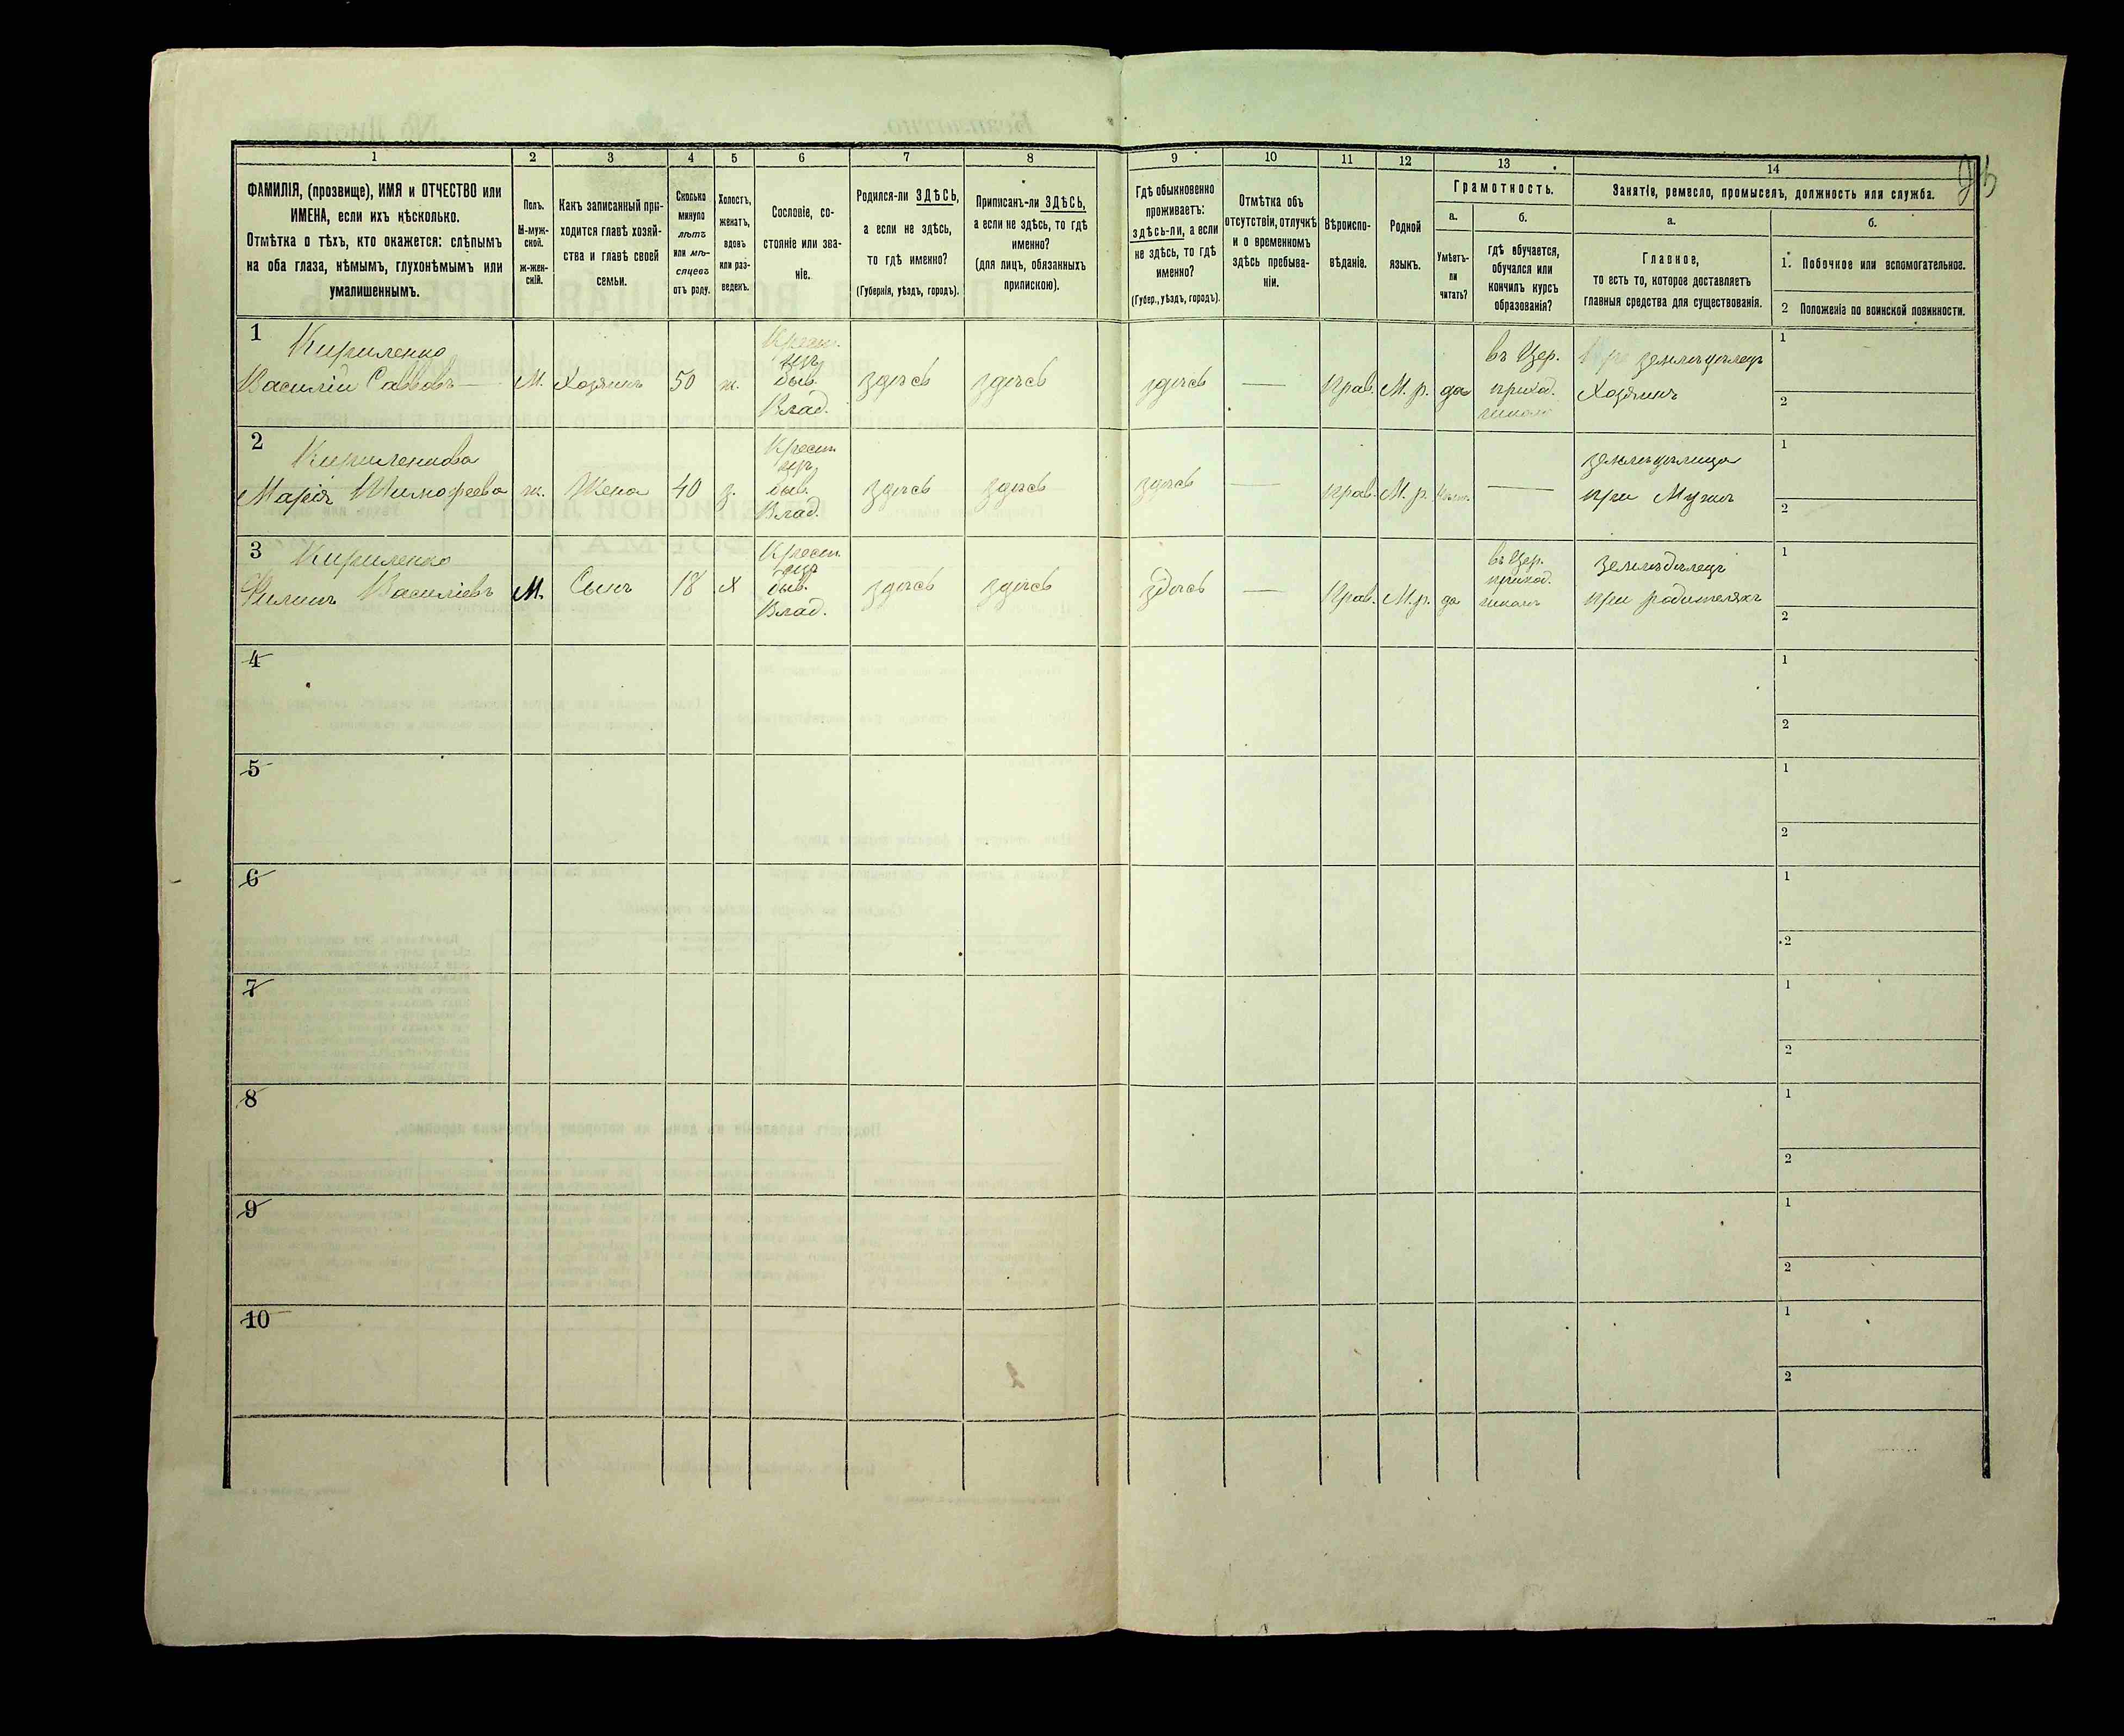 1 2 3 4 5 6 7 8 9 10 11 12 13 14
ФАМИЛІЯ, (прозвище), ИМЯ и ОТЧЕСТВО или
ИМЕНА, если ихъ нѣсколько.
Отмѣтка о тѣхъ, кто окажется: слѣпымъ
на оба глаза, нѣмымъ, глухонѣмымъ или
умалишеннымъ.
Полъ.
М-муж-
ской.
ж-жен-
скій.
Какъ записанный при-
ходится главѣ хозяй-
ства и главѣ своей
семьи.
Сколько
минуло
лѣтъ
или мѣ-
сяцевъ
отъ роду.
Холостъ,
женатъ,
вдовъ
или раз-
веденъ.
Сословіе, со-
стояніе или зва-
ніе.
Родился-ли ЗДѢСЬ,
а если не здѣсь,
то гдѣ именно?
(Губернія, уѣздъ, городъ).
Приписанъ-ли ЗДѢСЬ,
а если не здѣсь, то гдѣ
именно?
(для лицъ, обязанныхъ
припискою).
Гдѣ обыкновенно
проживаетъ:
здѣсь-ли, а если
не здѣсь, то гдѣ
именно?
(Губер., уѣздъ, городъ).
Отмѣтка объ
отсутствіи, отлучкѣ
и о временномъ
здѣсь пребыва-
ніи.
Вѣроиспо-
вѣданіе.
Родной
языкъ.
Грамотность.
а.
Умѣетъ-
ли
читать?
б.
гдѣ обучается,
обучался или
кончилъ курсъ
образованія?
Занятія, ремесло, промыселъ, должность или служба.
а.
Главное,
то есть то, которое доставляетъ
главныя средства для существованія.
б.
1. Побочное или вспомогательное.
2 Положеніе по воинской повинности.
1 Кириленко
Василій Саввовъ
М. Хозяинъ 50 ж.
Крест.
изъ
быв.
Влад.
здѣсь здѣсь здѣсь — Прав. М. р. да
въ Цер.
приход.
школѣ
земледѣлецъ
Хозяинъ
1
2
2 Кириленкова
Марія Тимофеева
ж. Жена 40 з.
Крест.
изъ
быв.
Влад.
здѣсь здѣсь здѣсь — Прав. М. р. —
земледѣлица
при Мужѣ
1
2
3 Кириленко
Филипъ Василіевъ
М. Сынъ 18 х
Крест.
изъ
быв.
Влад.
здѣсь здѣсь здѣсь — Прав. М. р. да
въ Цер.
приход.
школѣ
земледѣлецъ
при родителяхъ
1
2
4
1
2
5
1
2
6
1
2
7
1
2
8
1
2
9
1
2
10
1
2